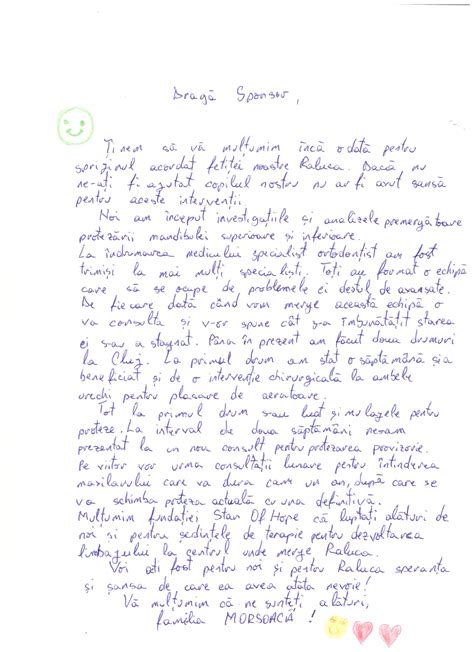 Dragă Sponsor,
Ținem să vă mulțumim încă odată pentru
sprijinul acordat fetiței noastre Raluca. Dacă nu
ne-ați fi ajutat copilul nostru nu ar fi avut șansă
pentru aceste intervenții.
Noi am început investigațiile și analizele premergătoare
protezării mandibulei superioare și inferioare.
La îndrumarea medicului specialist ortodontist am fost
trimiși la mai mulți specialiști. Toți au format o echipă
care să se ocupe de problemele ei destul de avansate.
De fiecare dată când vom merge această echipă o
va consulta și v-or spune cât s-a îmbunătățit starea
ei s-au a stagnat. Până în prezent am făcut doua drumuri
la Cluj. La primul drum am stat o săptămână și a
beneficiat și de o intervenție chirurgicală la ambele
urechi pentru plasare de aeratoare.
Tot la primul drum s-au luat și mulajele pentru
proteze. La interval de două săptămâni ne-am
prezentat la un nou consult pentru protezarea provizorie.
Pe viitor vor urma consultații lunare pentru întinderea
maxilarului care va dura cam un an, după care se
va schimba proteza actuală cu una definitivă.
Mulțumim fundației Star Of Hope că luptați alături de
noi și pentru ședințele de terapie pentru dezvoltarea
limbajului la centrul unde merge Raluca.
Voi ați fost pentru noi și pentru Raluca speranța
și șansa de care ea avea atâta nevoie!
Vă mulțumim că ne sunteți alături,
familia MORSOACĂ !